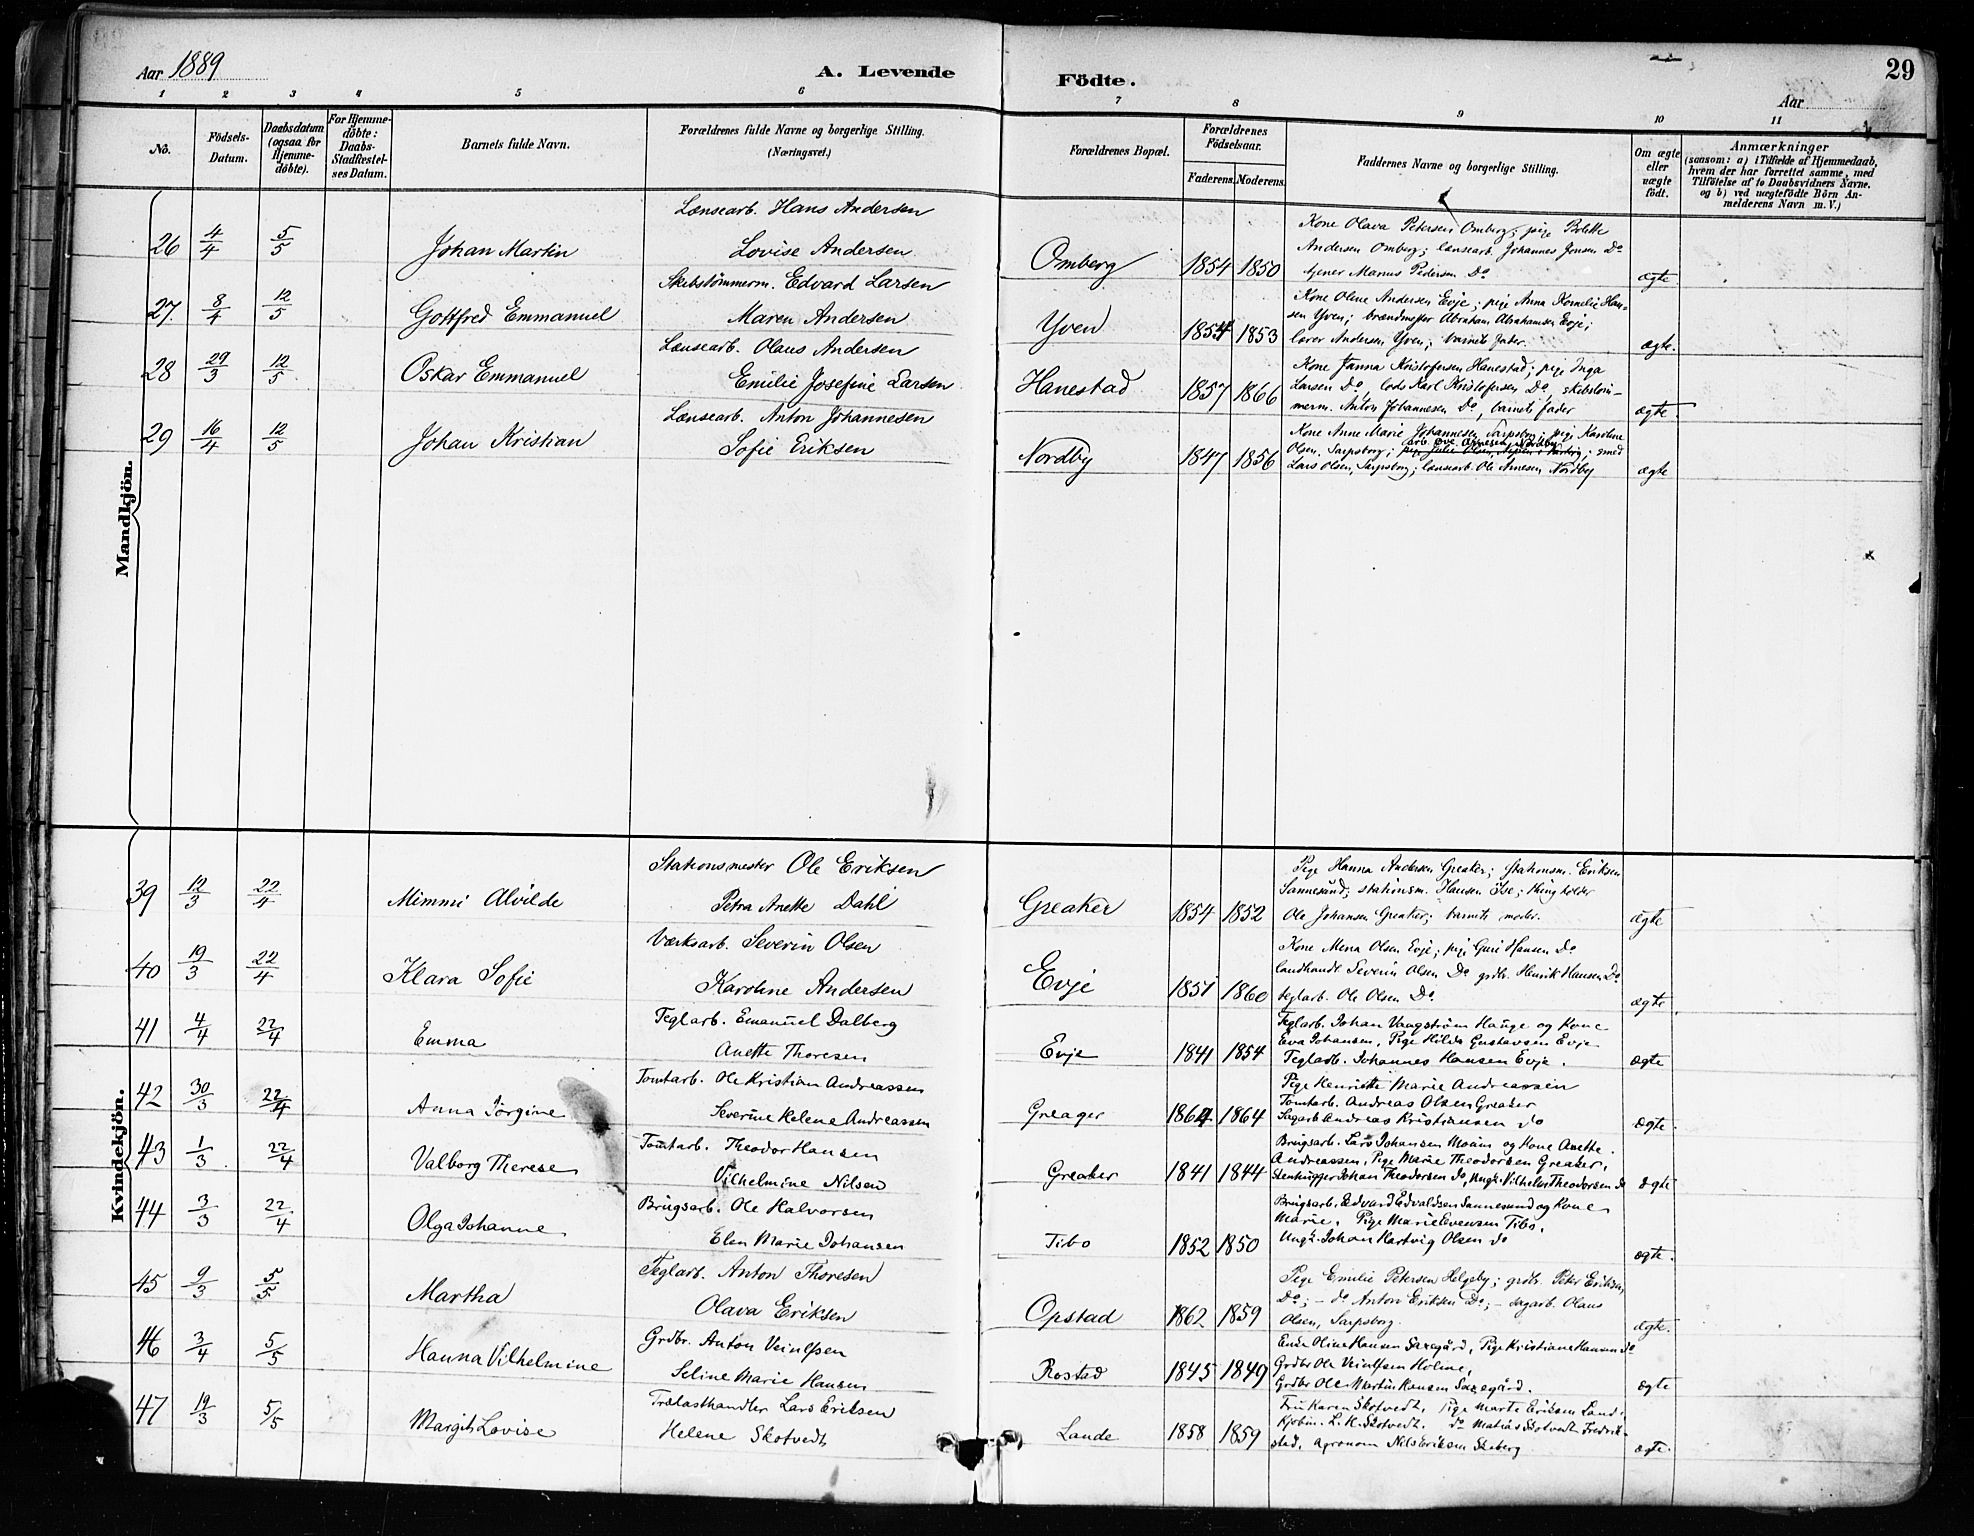 Aar 1889
A. Levende
Födte.
29
Aar
1 2 3 4 5 6 7 8 9 10 11
No.
Födsels-
Datum.
Daabsdatum
(ogsaa for
Hjemme-
døbte).
For Hjemme-
døbte:
Daabs-
Stadfæstel-
ses Datum.
Barnets fulde Navn.
Forældrenes fulde Navne og borgerlige Stilling.
(Næringsvei.)
Forældrenes Bopæl.
Forældrenes
Födselsaar.
Faderens.
Moderens.
Faddernes Navne og borgerlige Stilling.
Om ægte
eller
uægte
født.
Anmærkninger
(saasom: a) i Tilfælde af Hjemmedaab,
hvem der har forrettet samme, med
Tilföielse af to Daabsvidners Navne.
og b) ved uægtefödte Börn An-
melderens Navn m. V.)
Mandkjön.
26 4/4 5/5 Johan Martin
Lænsearb. Hans Andersen
Lovise Andersen
Omberg 1854 1850
Kone Olava Petersen Omberg; pige Bolette
Andersen Omberg; lænsearb. Johannes Jensen Do
tjener Marius Pedersen Do
ægte
27. 8/4 12/5 Gottfred Emmanuel
Skibstømmerm. Edvard Larsen
Maren Andersen
Yven 1854 1853
Kone Oline Andersen Evje; pige Anna Kornelie Han-
sen Yven; brændmester Abraham Abrahamsen Evje;
lærer Andersen Yven; barnets fader.
ægte.
28 29/3 12/5 Oskar Emmanuel
Lænsearb. Olaus Andersen
Emilie Josefine Larsen
Hanestad 1857 1866
Kone Janna Kristofersen Hanestad; pige Inga
Larsen Do, lods Karl Kristofersen Do, skibstøm-
merm. Anton Johannesen Do, barnets fader
ægte.
29 16/4 12/5 Johan Kristian
Lænsearb. Anton Johannesen
Sofie Eriksen
Nordby 1847 1856
Kone Anne Marie Johannesen Sarpsborg; pige Karoline
Olsen, Sarpsborg; smed
Lars Olsen, Sarpsborg; lænsearb. Ole Arnesen Nordby
ægte
Kvindekjön.
39 12/3 22/4 Mimmi Alvilde
Stationsmester Ole Eriksen
Petra Anette Dahl
Greaker 1854 1852
Pige Hanna Andersen Greaker; stationsm. Eriksen
Sannesund; stationsm. Hansen Ise;
Ole Johansen Greaker; barnets moder.
ægte
40 19/3 22/4 Klara Sofie
Værksarb. Severin Olsen
Karoline Andersen
Evje 1857 1860
Kone Mena Olsen Evje; pige Guri Hansen Do
landhandl. Severin Olsen Do grdbr. Henrik Hansen Do
teglarb. Ole Olsen Do
ægte
41 4/4 22/4 Emma
Teglarb. Emanuel Dalberg
Anette Thoresen
Evje 1841 1854
Teglarb. Johan Vangstrøm Hauge og Kone
Eva Johansen, Pige Hilda Gustavsen Evje
Teglarb. Johannes Hansen Evje.
ægte
42 30/3 22/4 Anna Jørgine
Tomtarb. Ole Kristian Andreassen
Severine Helene Andreassen
Greager 1864 1864
Pige Henriette Marie Andreassen
Tomtarb. Andreas Olsen Greaker
Sagarb Andreas Kristiansen do
ægte.
43 1/3 22/4 Valborg Therese
Tomtarb. Theodor Hansen
Vilhelmine Nilsen
Greaker 1841 1844
Brugsarb. Lars Johansen Moum og Kone Anette.
Andreassen, Pige Marie Theodorsen Greaker,
Stenhugger Johan Theodorsen do, Ungk. Vilhelm Theodorsen do
ægte
44 3/3 22/4 Olga Johanne
Brugsarb. Ole Halvorsen
Elen Marie Johansen
Tibo 1852 1850
Brugsarb. Edvard Edvaldsen Sannesund og Kone
Marie, Pige Marie Evensen Tibo,
Ungk. Johan Hartvig Olsen do
ægte.
45 9/3 5/5 Martha
Teglarb. Anton Thoresen
Olava Eriksen
Opstad 1862 1859
Pige Emilie Petersen Helgeby; grdb. Peter Eriksen,
Do; - do Anton Eriksen Do; - sagarb. Olaus
Olsen, Sarpsborg.
ægte.
46 3/4 5/5 Hanna Vilhelmine
Grdbr. Anton Veiulfsen
Seline Marie Hansen
Rostad 1845 1849
Enke Oline Hansen Saxegård, Pige Kristiane Hansen do
Grdbr Ole Veiulfsen Holme,
Grdbr Ole Martin Hansen Saxegård.
ægte
47 19/3 5/5 Margit Lovise
Trælasthandler Lars Eriksen
Helene Skofvedt
Lande 1858 1859
Fru Karen Skofvedt, pige Marte Eriksen Lande
Kjøbm. L. K. Skotvedt. do Matias Skotvedt Fredrik-
stad, Agronom Nils Eriksen Skeberg
ægte.